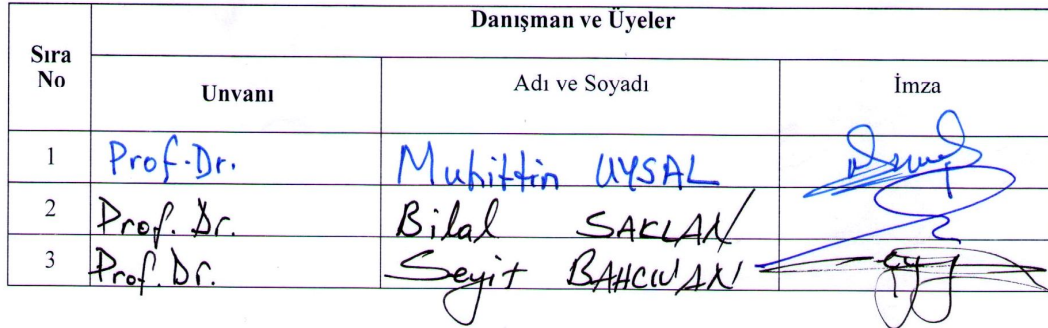 Danışman ve Üyeler
Sıra No
Unvanı
Adı ve Soyadı
İmza
1 Prof. Dr. Muhittin UYSAL
2 Prof. Dr. Bilal SAKLAN
3 Prof. Dr. Seyit BAHCIVAN